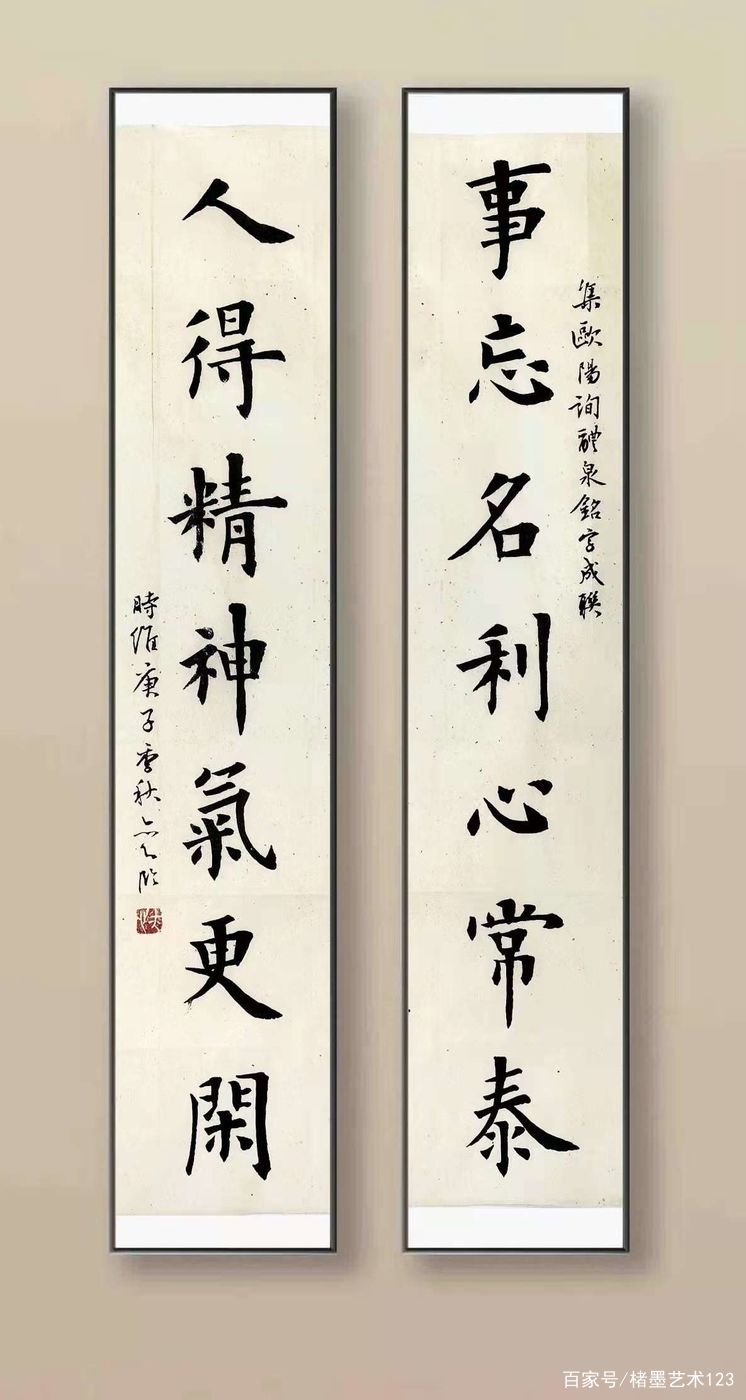 事忘名利心常泰
集歐陽詢醴泉銘字成聯
人得精神氣更閑
時維庚子季秋
百家号/楮墨艺术123